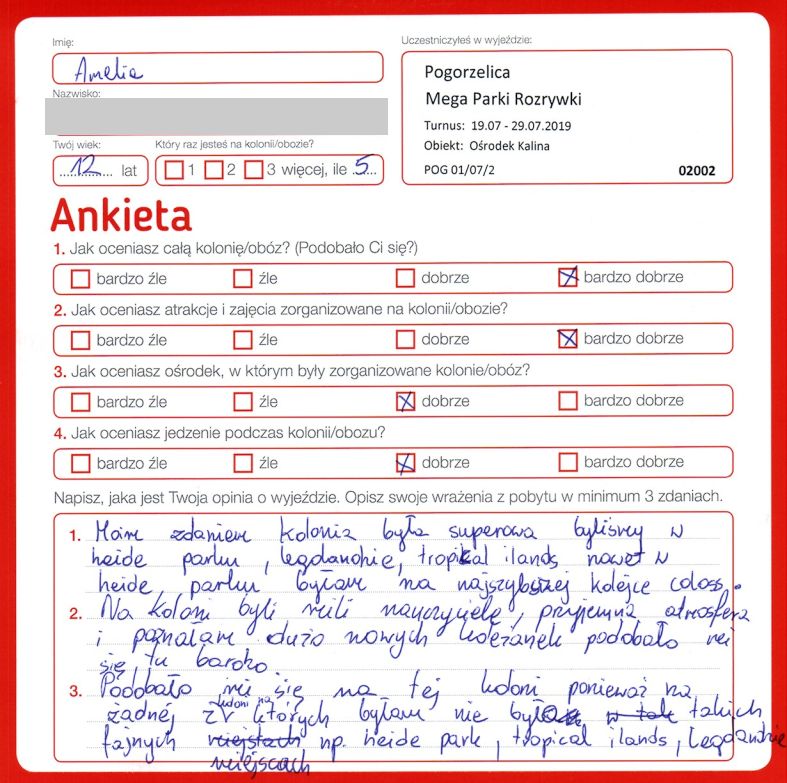 Imię:
Amelia
Nazwisko:
Twój wiek:
12 lat
Który raz jesteś na kolonii/obozie?
1 2 3 więcej, ile 5
Uczestniczyłeś w wyjeździe:
Pogorzelica
Mega Parki Rozrywki
Turnus: 19.07 - 29.07.2019
Obiekt: Ośrodek Kalina
POG 01/07/2 02002
Ankieta
1. Jak oceniasz całą kolonię/obóz? (Podobało Ci się?)
bardzo źle źle dobrze bardzo dobrze
2. Jak oceniasz atrakcje i zajęcia zorganizowane na kolonii/obozie?
bardzo źle źle dobrze bardzo dobrze
3. Jak oceniasz ośrodek, w którym były zorganizowane kolonie/obóz?
bardzo źle źle dobrze bardzo dobrze
4. Jak oceniasz jedzenie podczas kolonii/obozu?
bardzo źle źle dobrze bardzo dobrze
Napisz, jaka jest Twoja opinia o wyjeździe. Opisz swoje wrażenia z pobytu w minimum 3 zdaniach.
1. Moim zdaniem kolonia była superowa byliśmy w
heide parku, legdandhie, tropical ilands nawet w
heide parku byłam na najszybszej kolejce coloss.
2. Na koloni byli mili nauczyciele, przyjemna atmosfera
i poznałam dużo nowych koleżanek podobało mi
się tu bardzo
3. Podobało mi się na tej koloni ponieważ na
żadnej z koloni na których byłam nie była w tak takich
fajnych miejstach np. heide park, tropical ilands, Legdandnie
miejscach